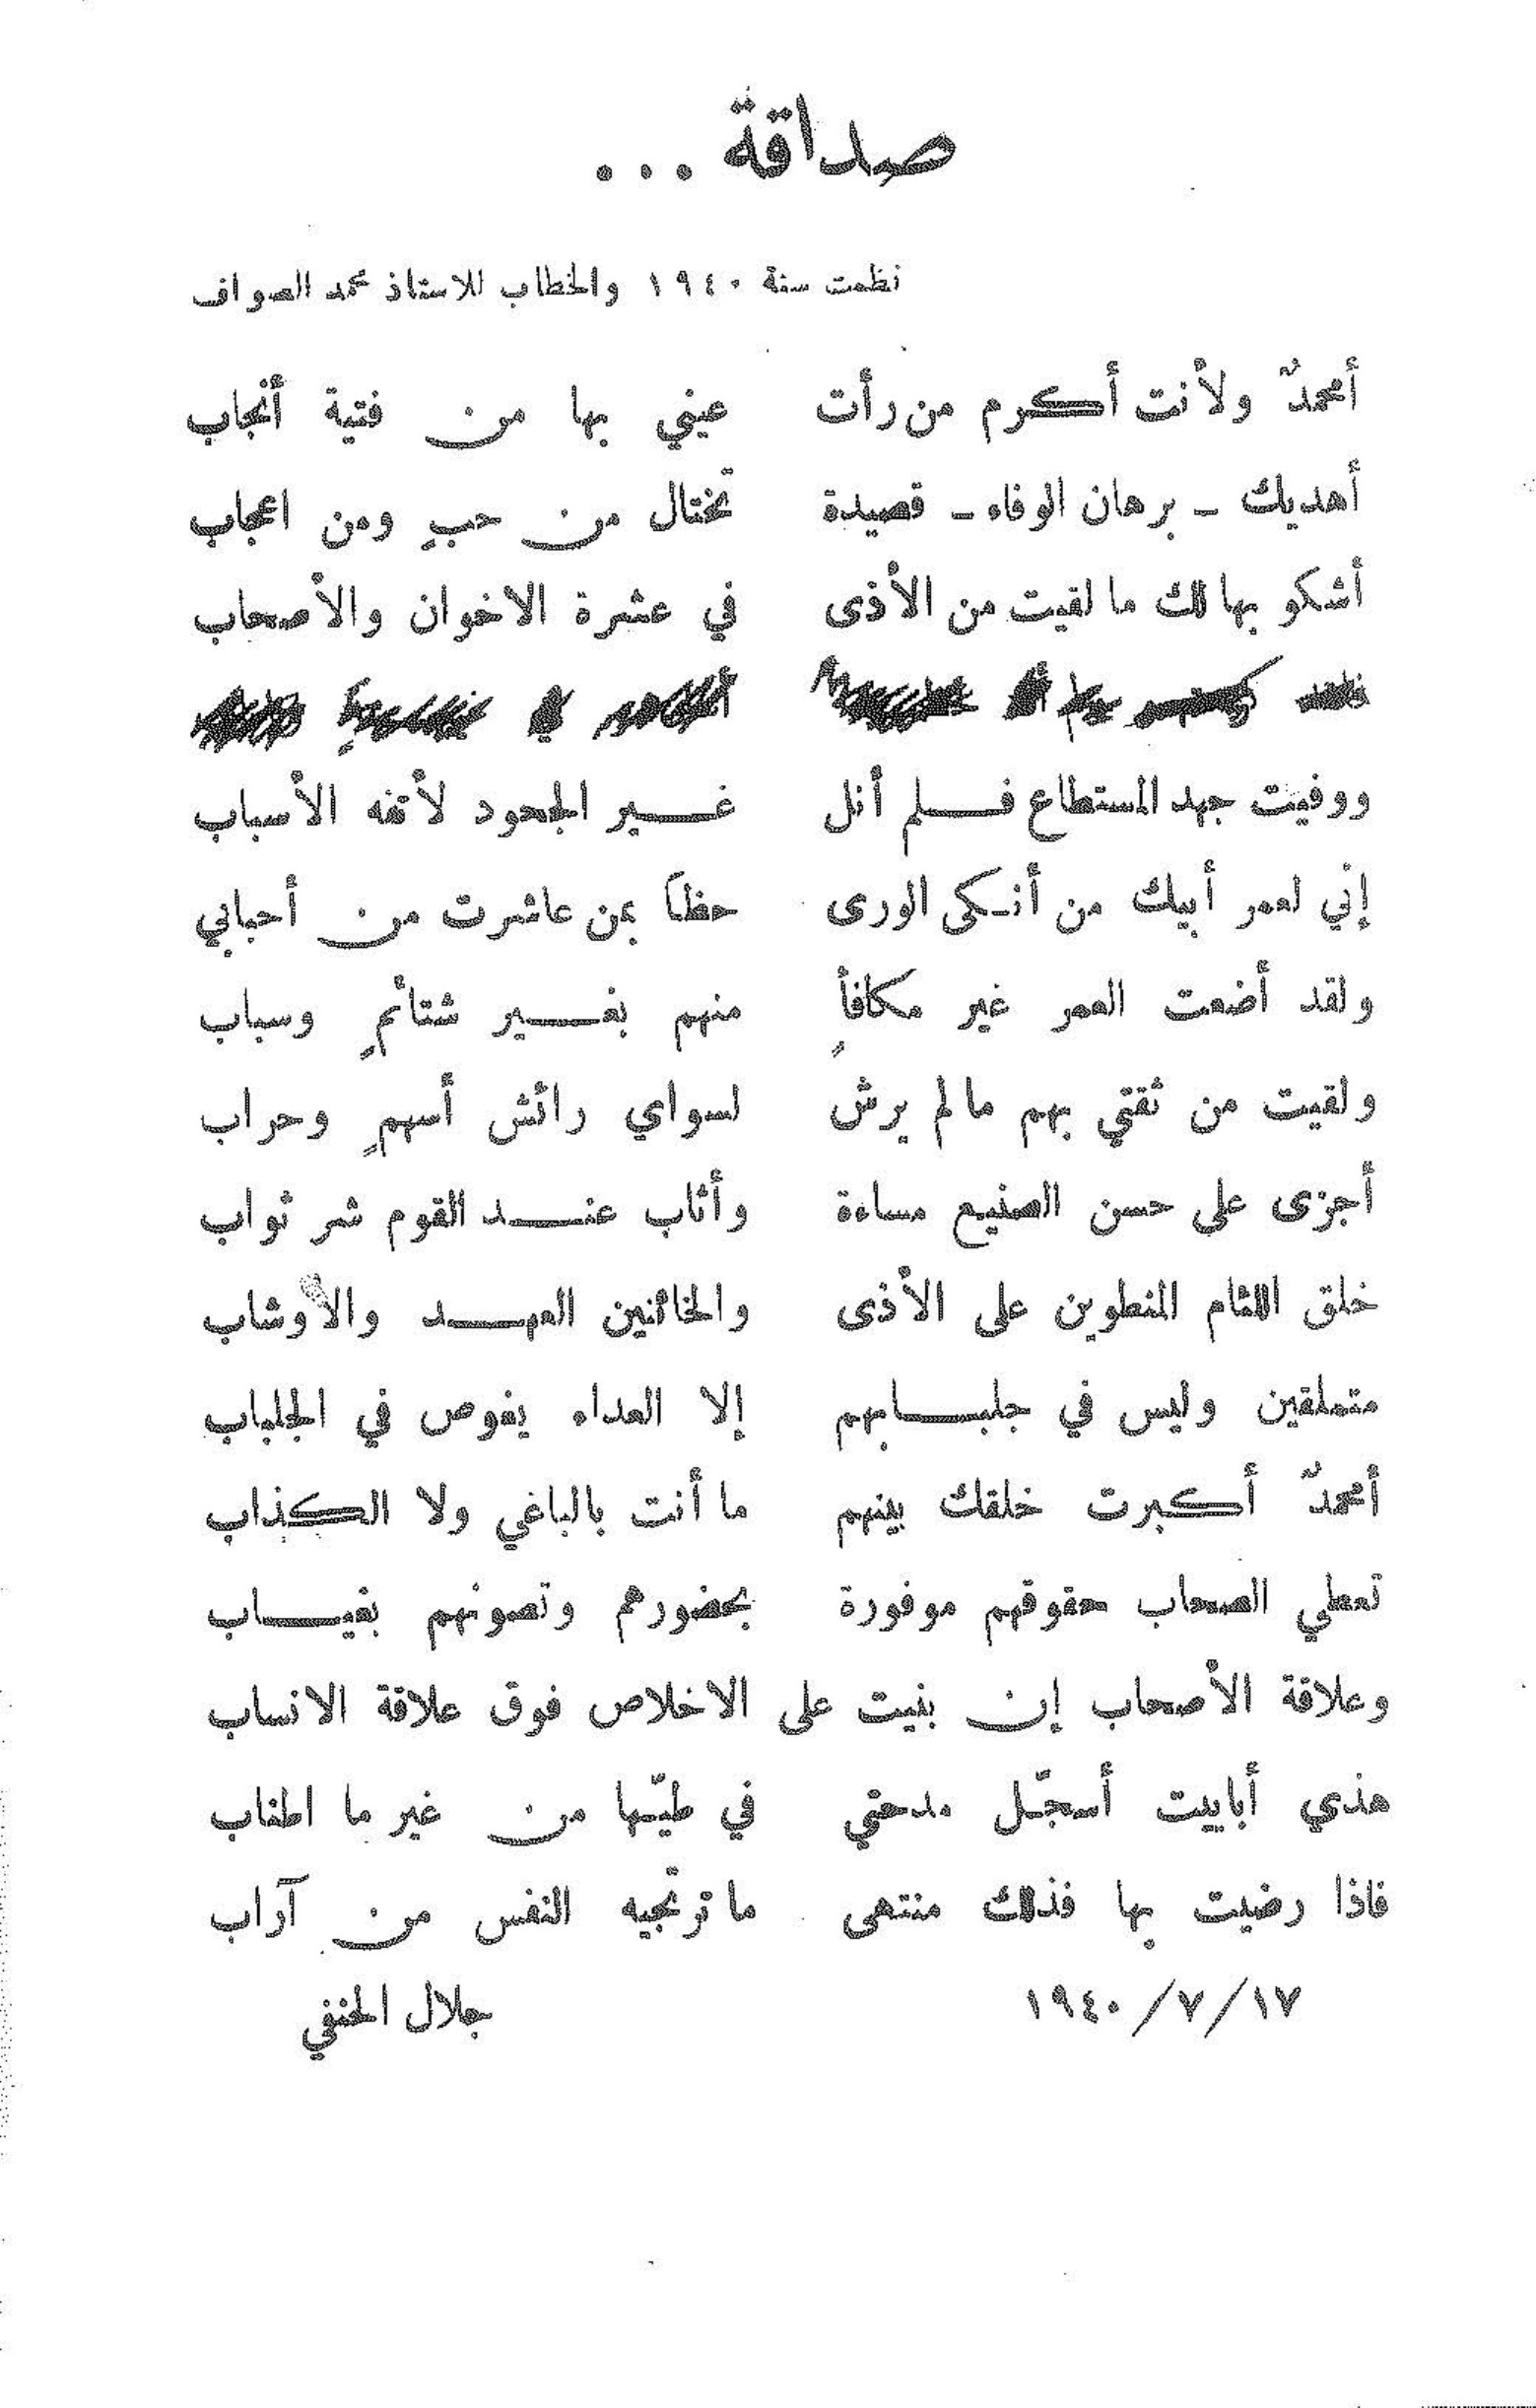 صداقة ...
نظمت سنة ١٩٤٠ والخطاب للاستاذ محمد الصواف
أمحمدٌ ولأنت أكرم من رأت عيني بها من فتية أنجاب
أهديك - برهان الوفاء - قصيدة تختال من حبٍ ومن اعجاب
أشكو بها لك ما لقيت من الأذى في عشرة الاخوان والأصحاب
ووفيت جهد المستطاع فلم أنل غير الجحود لأتفه الأسباب
إني لعمر أبيك من أنكى الورى حظاً بمن عاشرت من أحبابي
ولقد أضعت العمر غير مكافأٍ منهم بغير شتائمٍ وسباب
ولقيت من ثقتي بهم ما لم يرش لسواي رائش أسهمٍ وحراب
أجزى على حسن الصنيع مساءة وأثاب عند القوم شر ثواب
خلق اللئام المنطوين على الأذى والخائنين العهد والأوشاب
متملقين وليس في جلبابهم إلا العداء يغوص في الجلباب
أمحمدٌ أكبرت خلقك بينهم ما أنت بالباغي ولا الكذاب
تعطي الصحاب حقوقهم موفورة بحضورهم وتصونهم بغياب
وعلاقة الأصحاب إن بنيت على الاخلاص فوق علاقة الانساب
هذي أبابيت أسجّل مدحتي في طيّها من غير ما اطناب
فاذا رضيت بها فذلك منتهى ما ترتجيه النفس من آراب
١٧/٧/١٩٤٠ جلال الحنفي